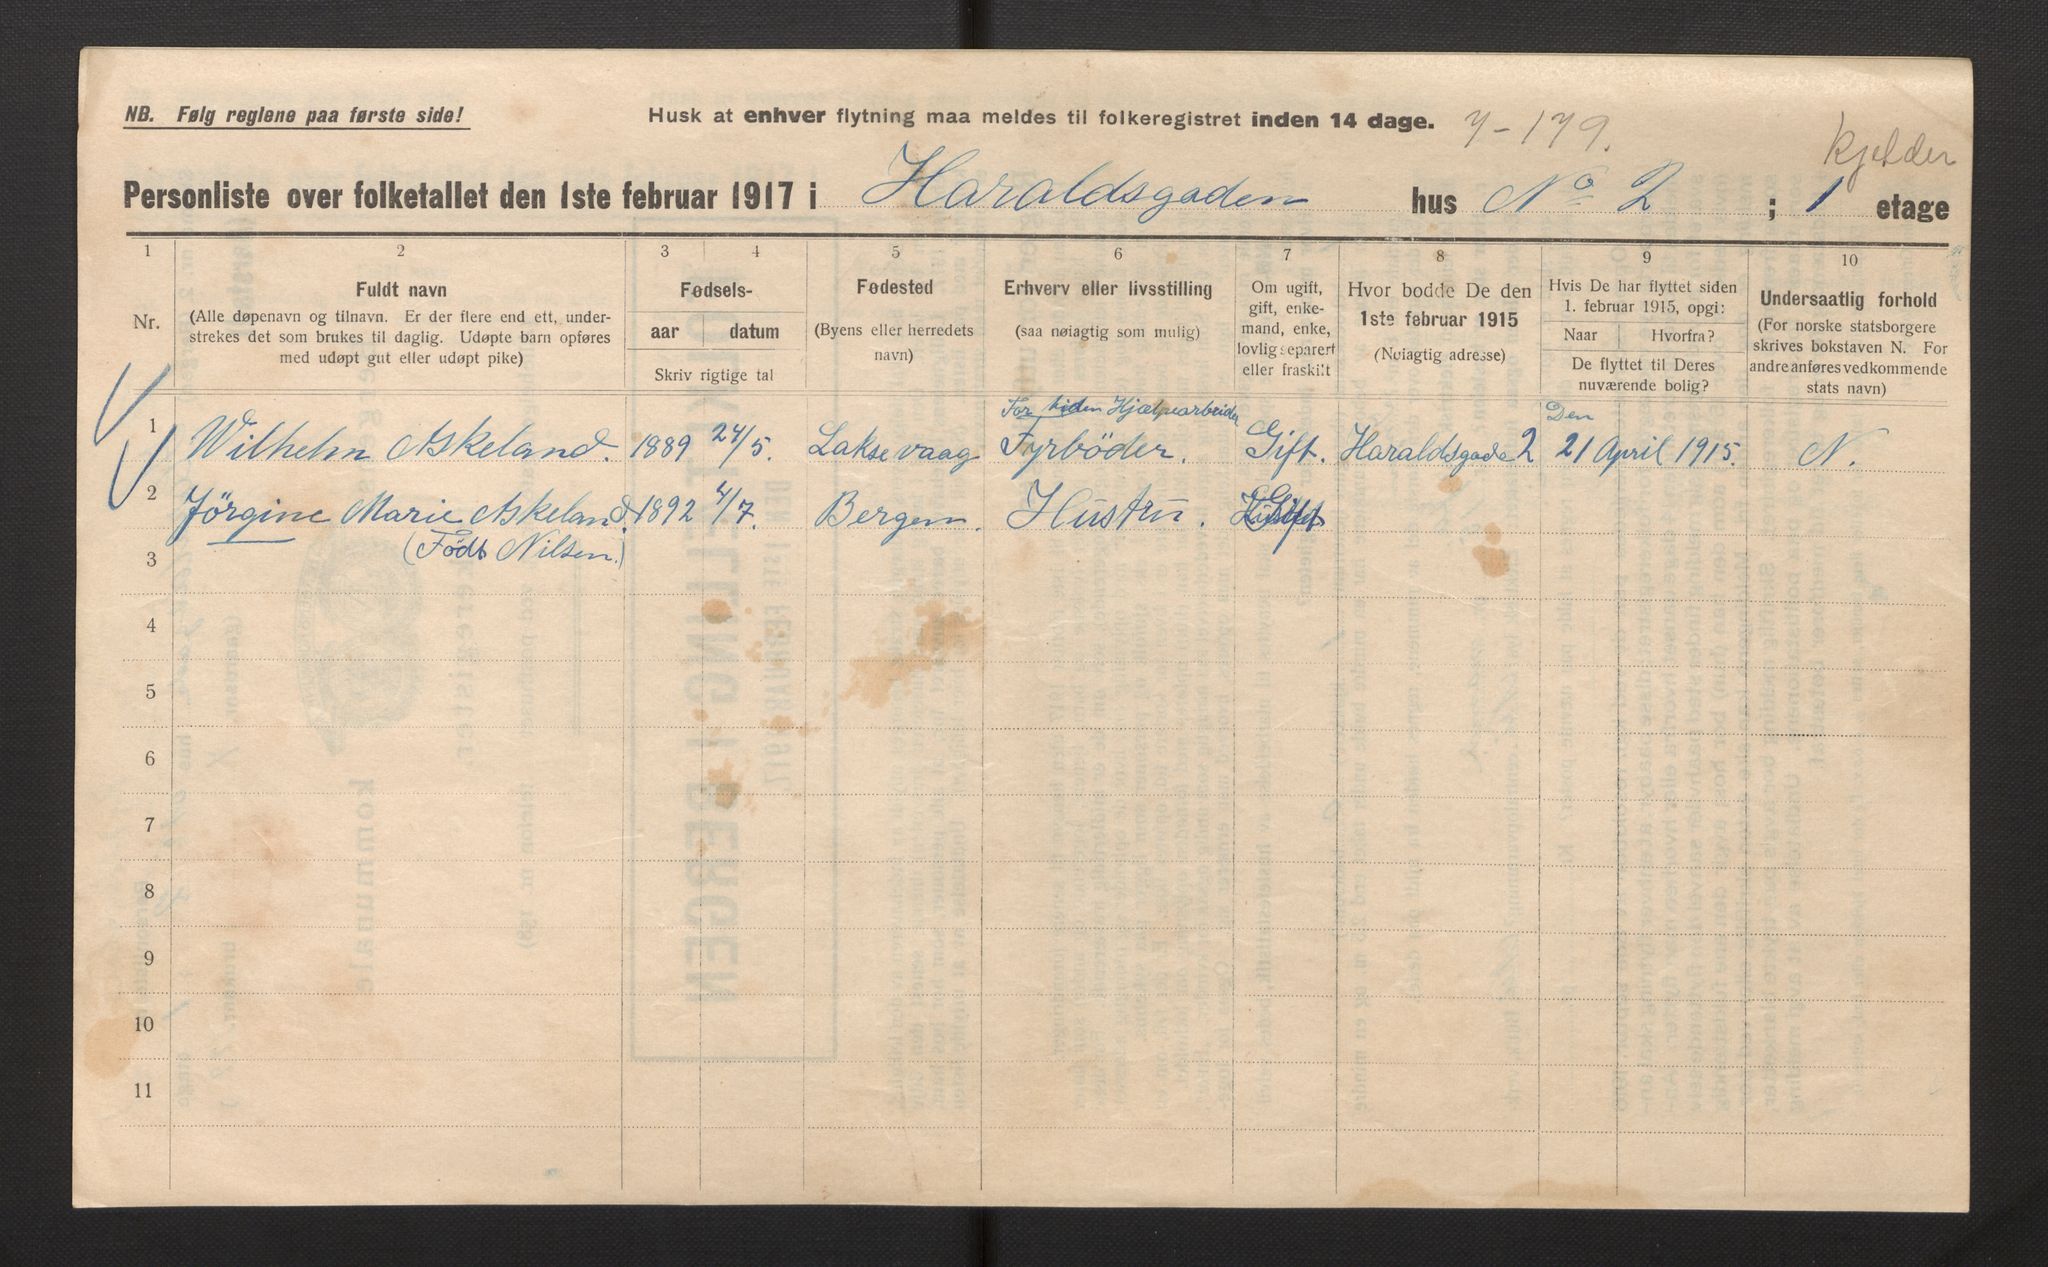 NB. Følg reglene paa første side!
Husk at enhver flytning maa meldes til folkeregistret inden 14 dage.
7-179.
kjelder
Personliste over folketallet den 1ste februar 1917 i Haraldsgaden hus No 2 ; 1 etage
1 2 3 4 5 6 7 8 9 10
Nr.
Fuldt navn
(Alle døpenavn og tilnavn. Er der flere end ett, under-
strekes det som brukes til daglig. Udøpte barn opføres
med udøpt gut eller udøpt pike)
Fødsels-
aar datum
Skriv rigtige tal
Fødested
(Byens eller herredets
navn)
Erhverv eller livsstilling
(saa nøiagtig som mulig)
Om ugift,
gift, enke-
mand, enke,
lovlig separert
eller fraskilt
Hvor bodde De den
1ste februar 1915
(Nøiagtig adresse)
Hvis De har flyttet siden
1. februar 1915, opgi:
Naar Hvorfra?
De flyttet til Deres
nuværende bolig?
Undersaatlig forhold
(For norske statsborgere
skrives bokstaven N. For
andre anføres vedkommende
stats navn)
For tiden Hjælpearbeider
Den
1 Wilhelm Askeland. 1889 24/5. Laksevaag Fyrböder. Gift. Haraldsgade 2 21 April 1915. N.
2 Jörgine Marie Askeland. 1892 4/7. Bergen. Hustru. Gift
3 (Födt Nilsen.)
4
5
6
7
8
9
10
11